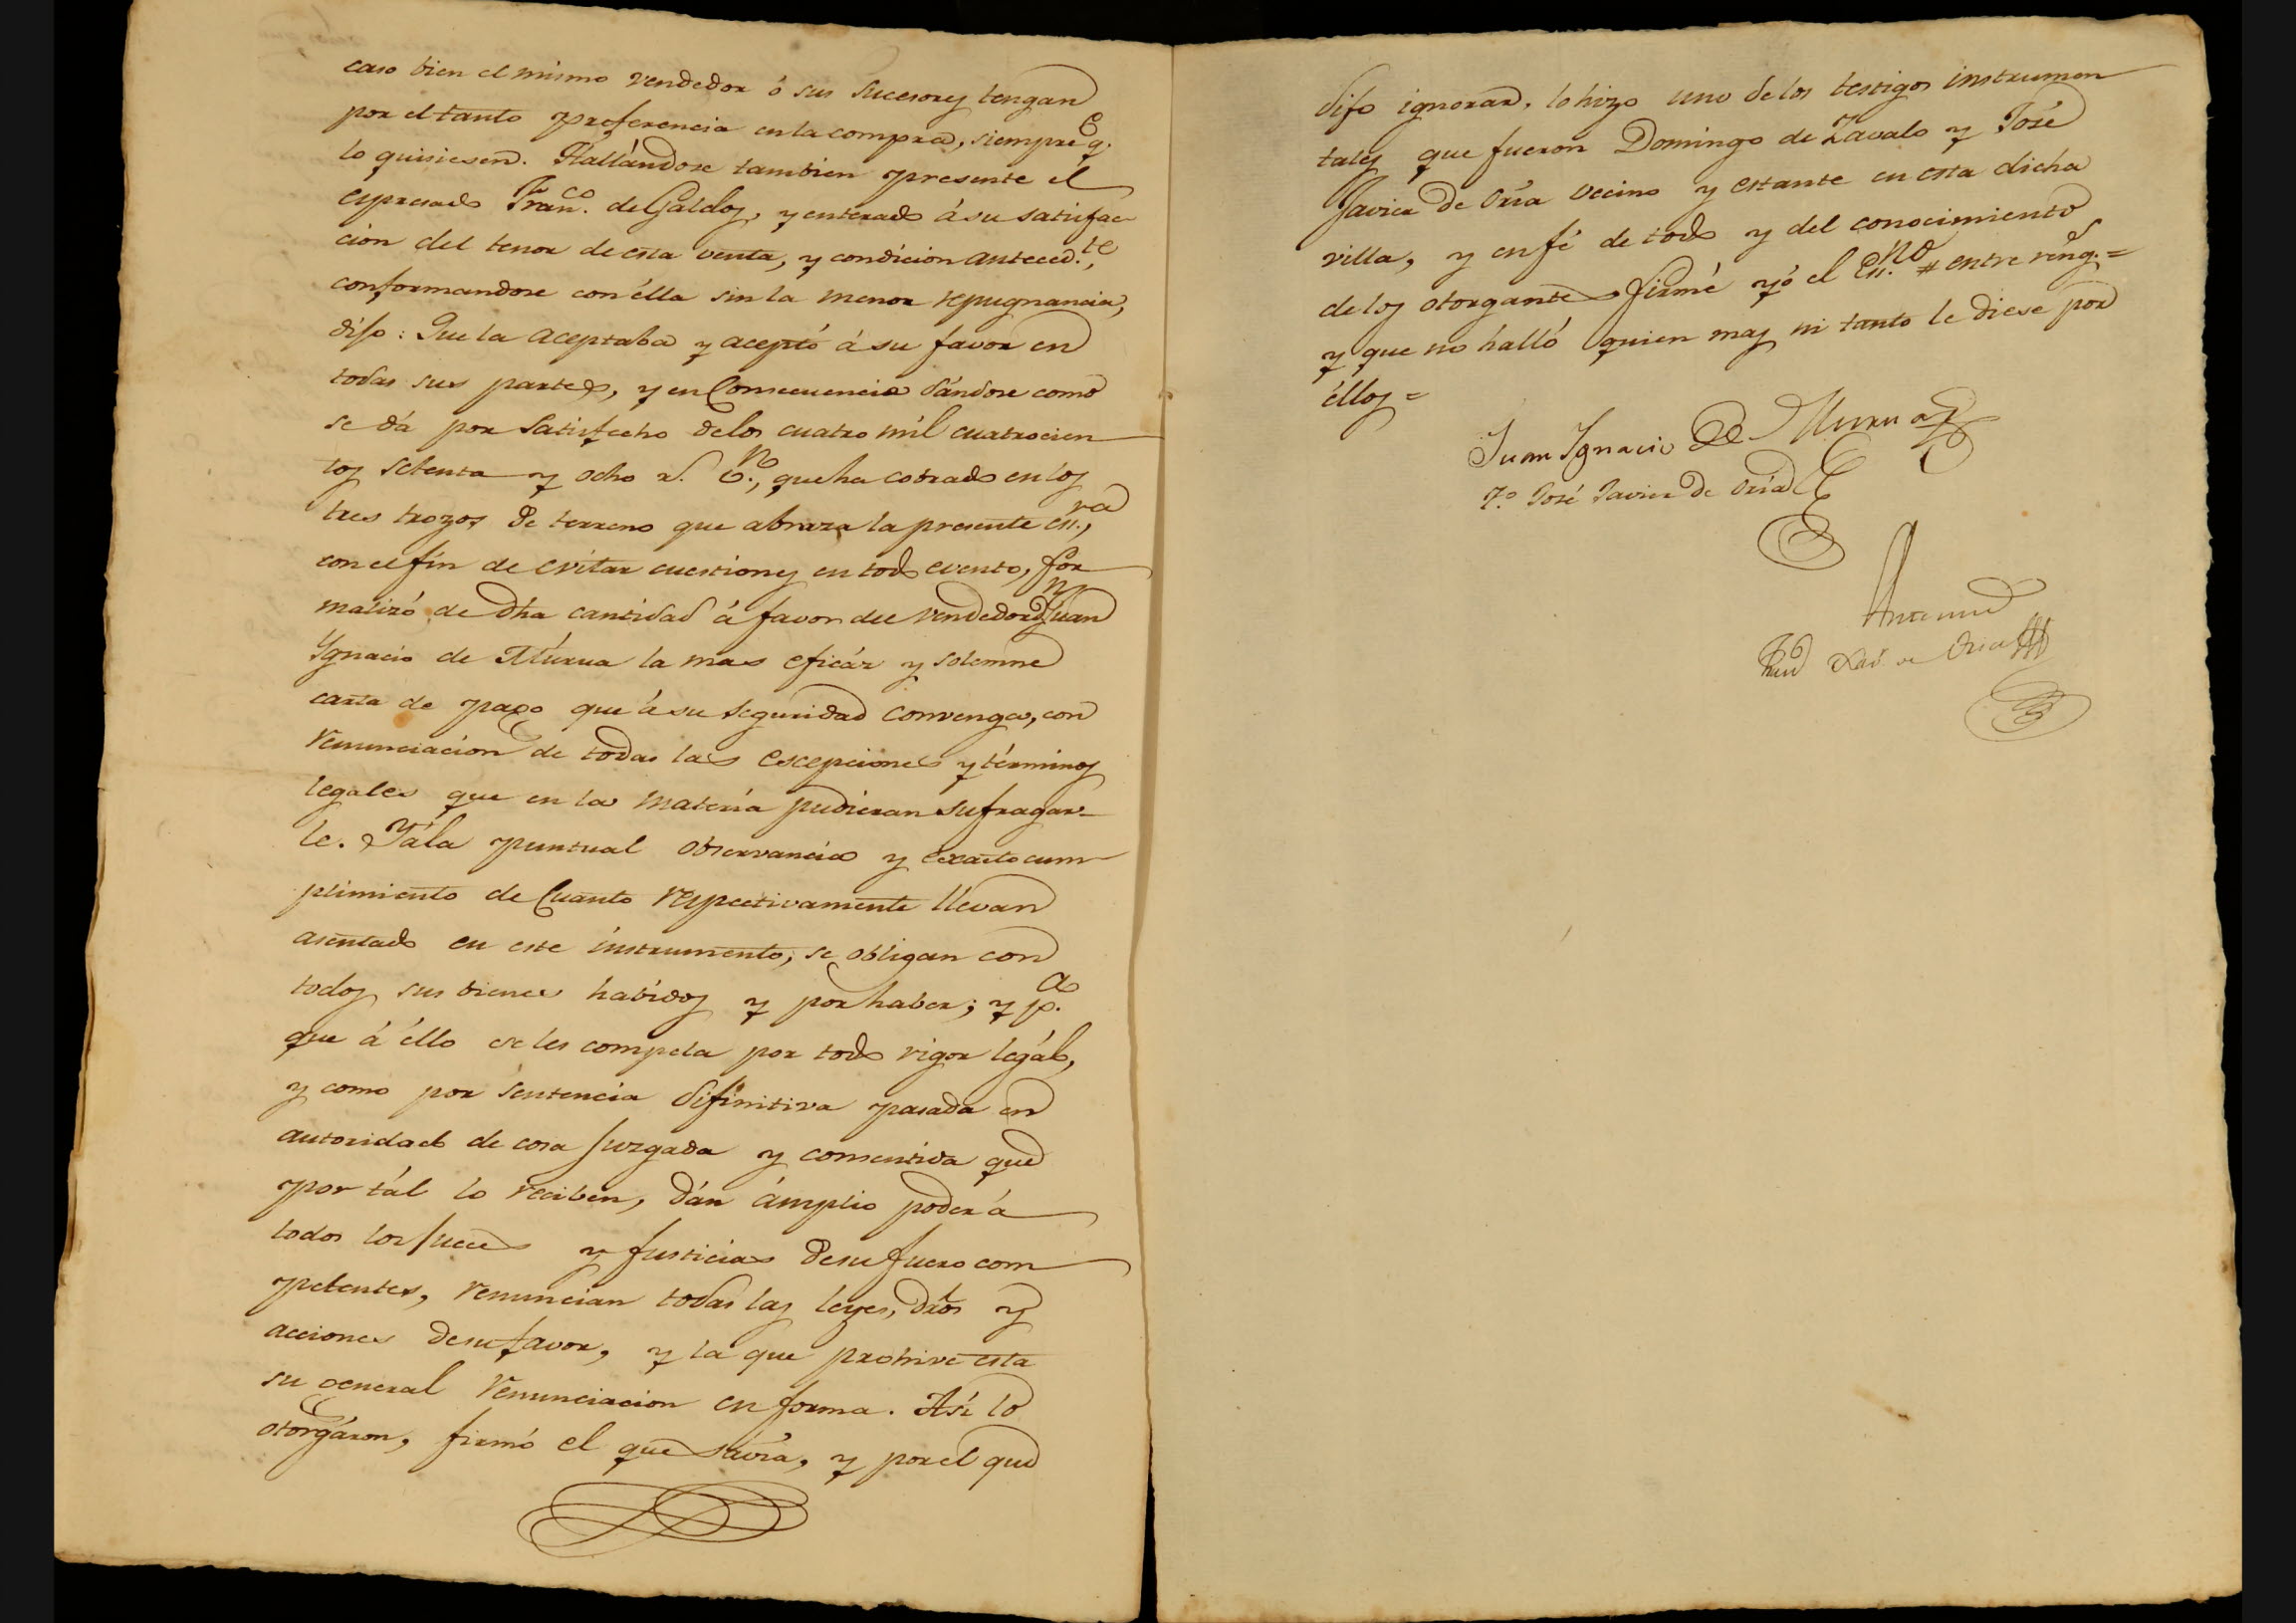 caso bien el mismo vendedor ó sus sucesores tengan
por el tanto preferencia en la compra, siempre q.e
lo quisiesen. Hallándose tambien presente el
espresado Fran.co de Galdos, y enterado á su satisfac
cion del tenor de esta venta, y condicion anteced.te,
conformandose con élla sin la menor repugnancia,
dijo: Que la aceptaba y aceptó á su favor en
todas sus partes, y en Consecuencia dándose como
se dá por satisfecho de los cuatro mil cuatrocien
tos setenta y ocho r.s v.n, que ha cobrado en los
tres trozos de terreno que abraza la presente es.ra,
con el fin de evitar cuestiones en todo evento, for
malizó de dha cantidad á favor del vendedor Juan
Ygnacio de Murua la mas eficáz y solemne
carta de pago que á su seguridad convenga, con
renunciacion de todas las escepciones y términos
legales que en la matéria pudieran sufragar-
le. Y á la puntual observancia y exacto cum
plimiento de Cuanto respectivamente llevan
asentado en este instrumento, se obligan con
todos sus bienes habidos y por haber; y p.a
que á éllo se les compela por todo rigor legál,
y como por sentencia difinitiva pasada en
autoridad de cosa juzgada y consentida que
por tál lo reciben, dán ámplio poder á
todos los jueces y justicias de su fuero com
petentes, renuncian todas las leyes, dros y
acciones de su favor, y la que prohive esta
su general renunciacion en forma. Así lo
otorgáron, firmó el que savía, y por el que
dijo ignorar, lo hizo uno de los testigos instrumen
tales que fueron Domingo de Zavalo y José
Javier de Oria vecino y estante en esta dicha
villa, y en fé de todo y del conocimiento
de los otorgantes firmé yó el Es.no # entre reng.s =
y que no halló quien mas ni tanto le diese por
éllos =
Juan Ygnacio de Murua
T.o José Javier de Oria
Ante mi
Xav. de Oria